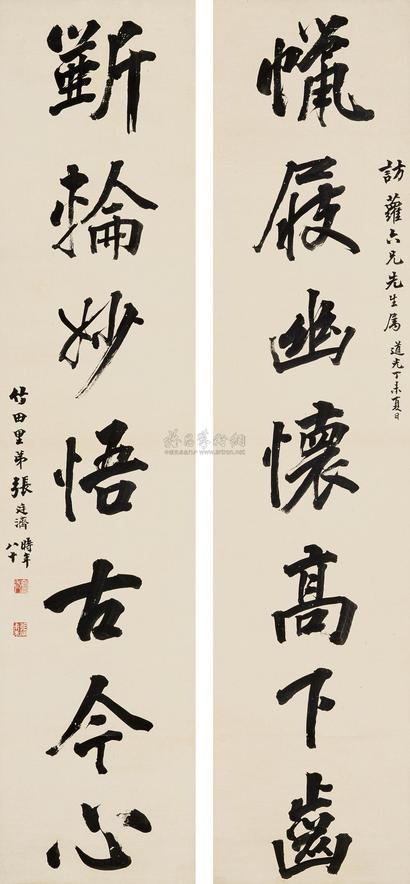 蠟屐幽懷高下齒
訪蘿六兄先生屬 道光丁未夏日
斲輪妙悟古今心
竹田里弟張廷濟時年八十
www.artron.net